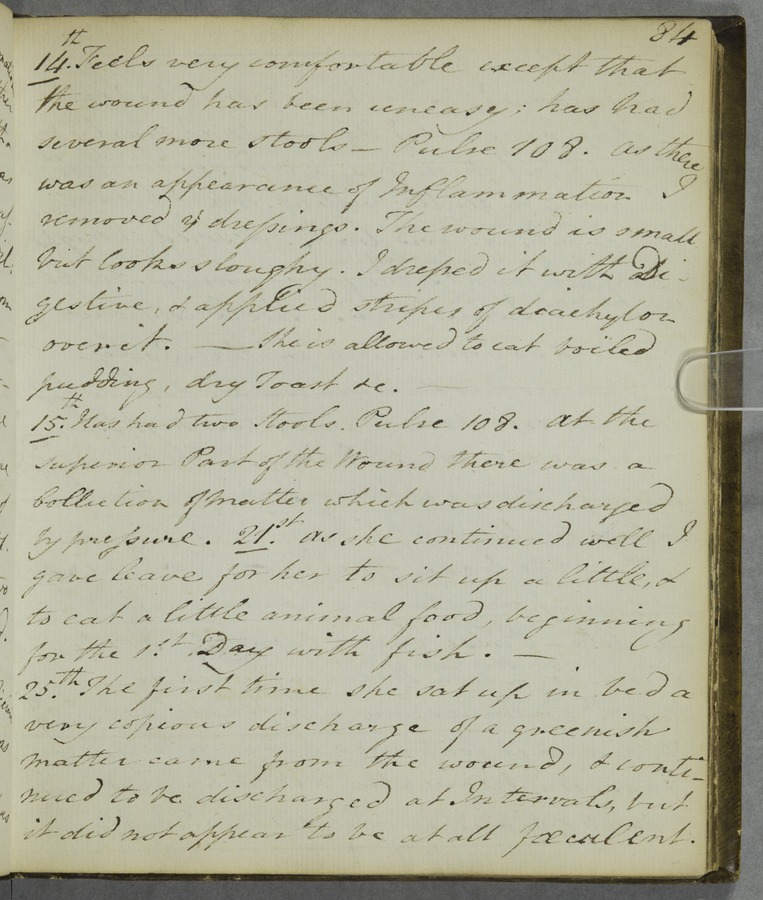 84
14th. Feels very comfortable except that
the wound has been uneasy; has had
several more stools — Pulse 108. as there
was an appearance of Inflammation I
removed ye dreſsings. The wound is small
but looks sloughy. I dreſsed it with Di-
gestive, & applied stripes of diachylon
over it. — She is allowed to eat boiled
pudding, dry Toast &c. —
15th. Has had two Stools. Pulse 108. at the
superior Part of the Wound there was a
Collection of matter which was discharged
by preſsure. 21st. as she continued well I
gave leave for her to sit up a little, &
to eat a little animal food, beginning
for the 1st. Day with fish. —
25th. The first time she sat up in bed a
very copious discharge of a greenish
matter came from the wound, & conti-
nued to be discharged at Intervals, but
it did not appear to be at all fœculent.